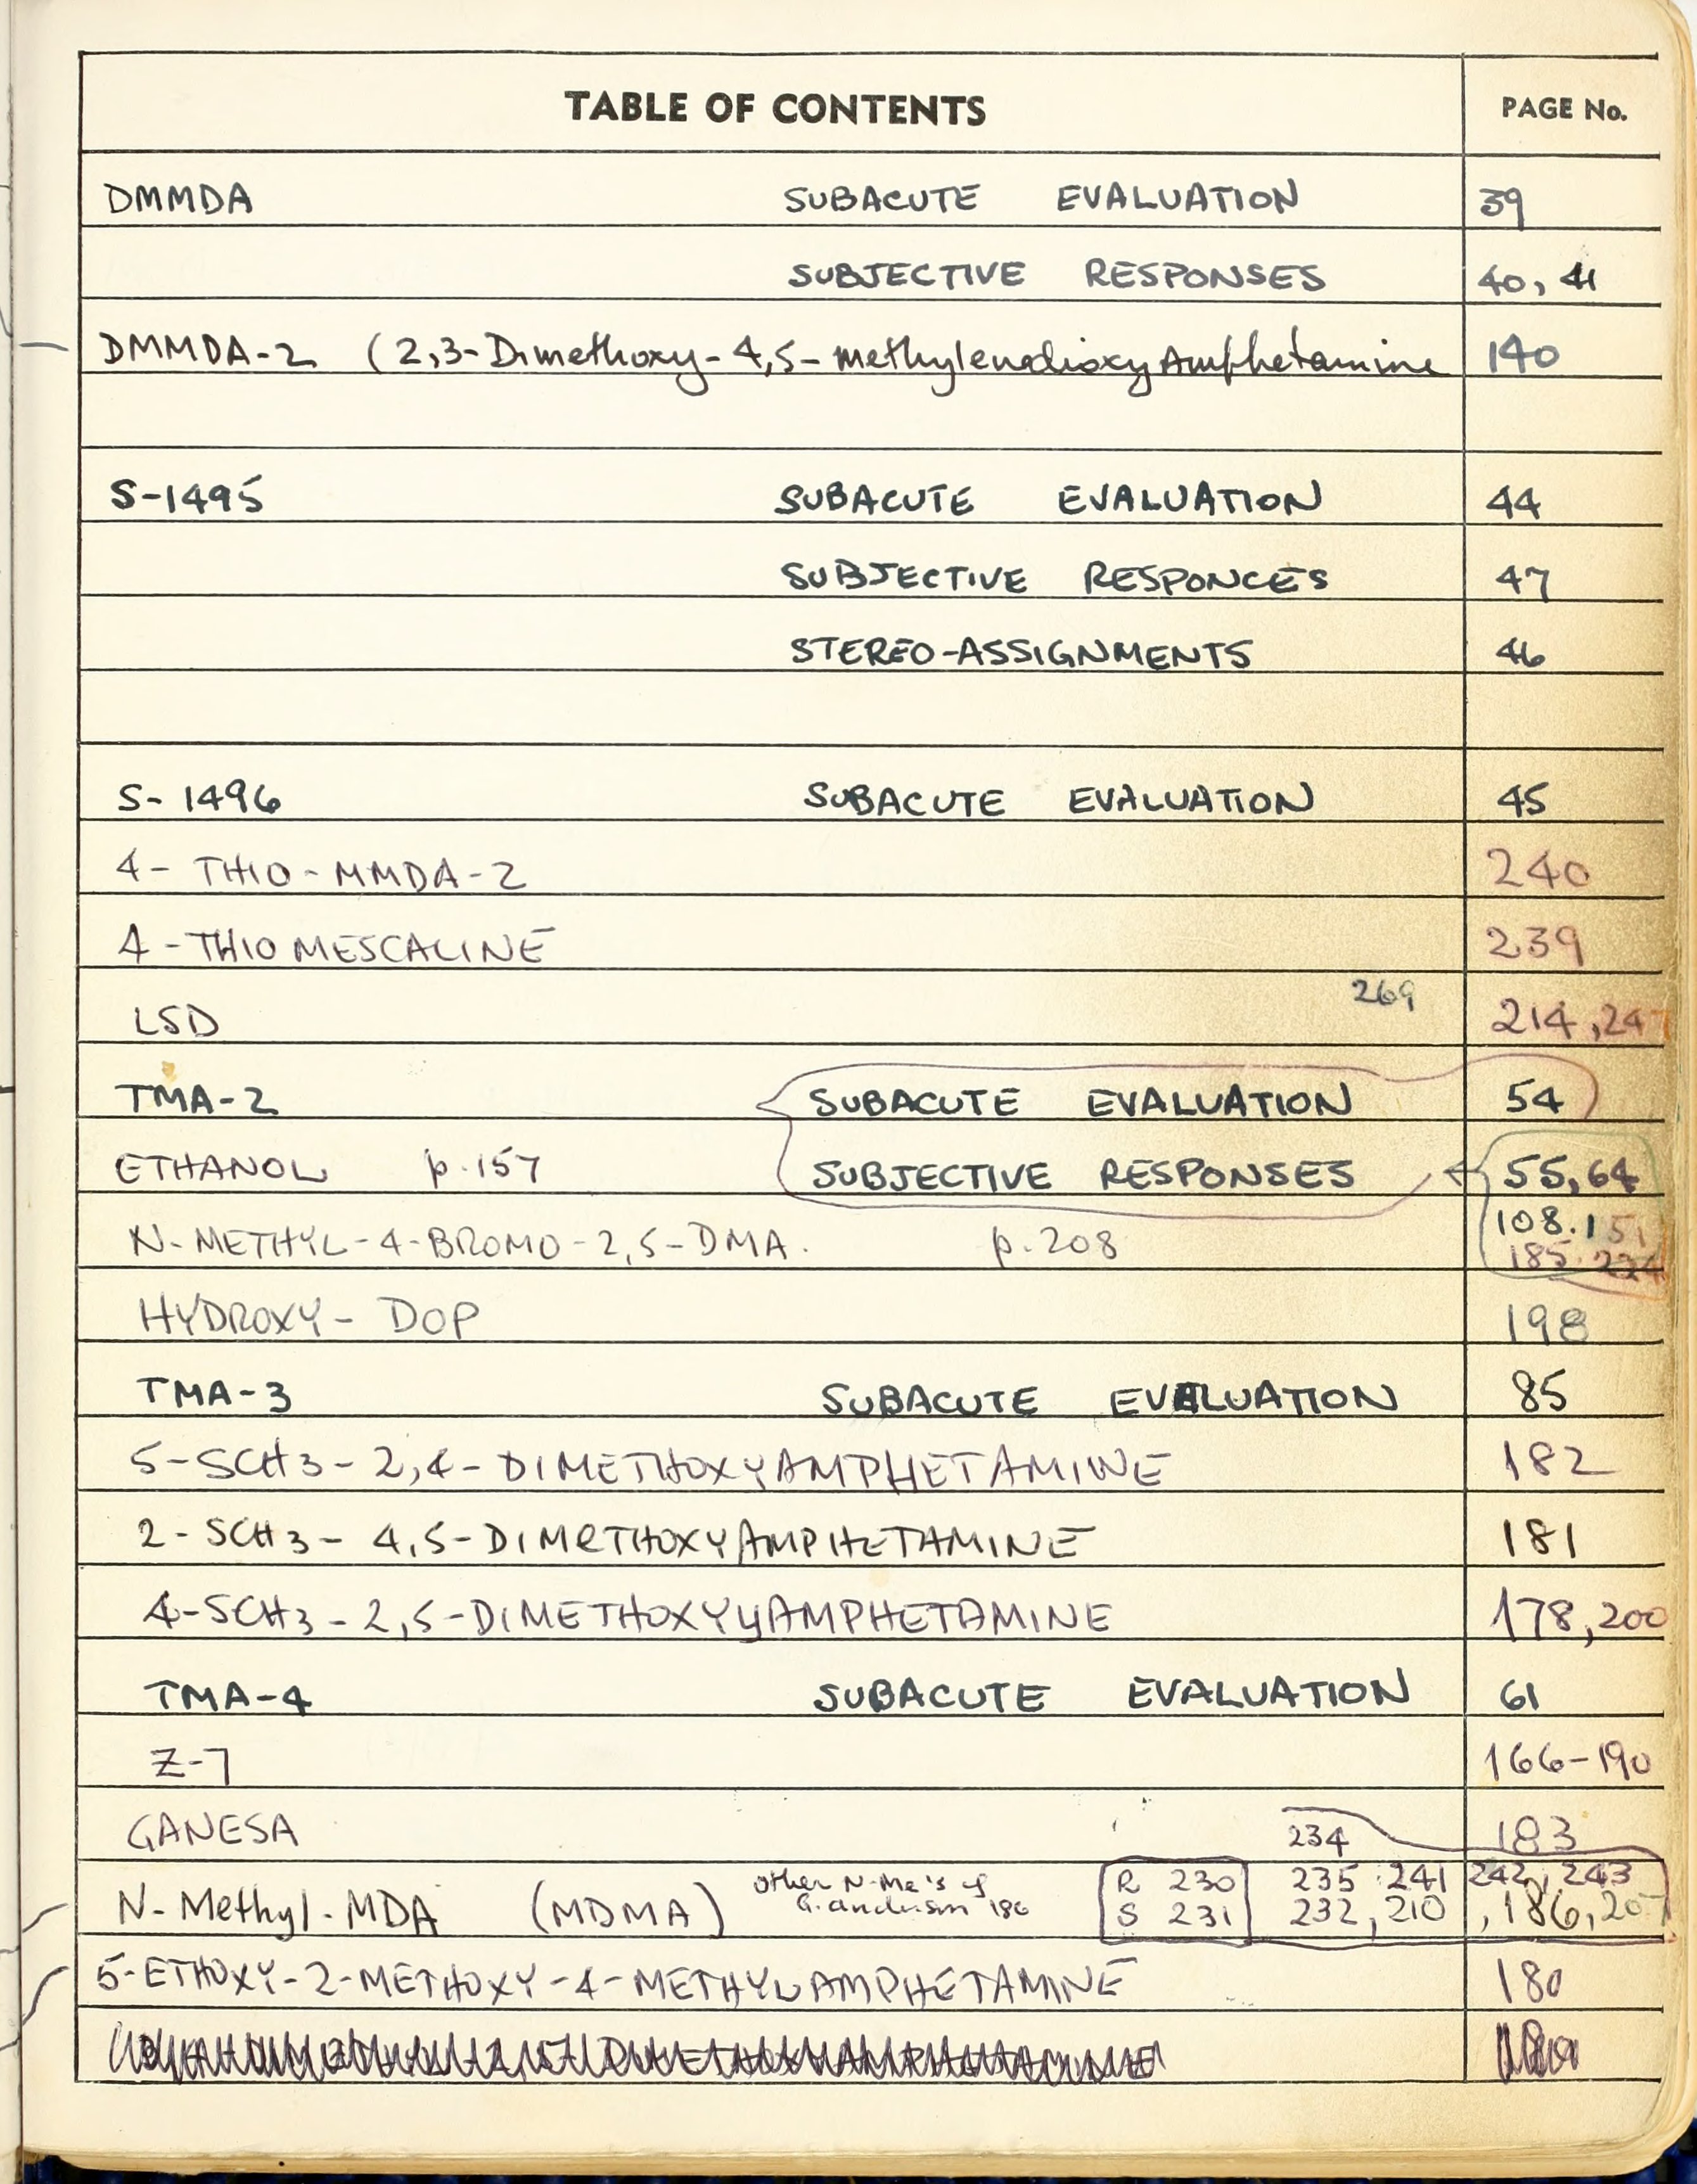 TABLE OF CONTENTS PAGE No.
DMMDA SUBACUTE EVALUATION 39
SUBJECTIVE RESPONSES 40, 41
DMMDA-2 (2,3-Dimethoxy-4,5-methylenedioxyAmphetamine 140
S-1495 SUBACUTE EVALUATION 44
SUBJECTIVE RESPONCES 47
STEREO-ASSIGNMENTS 46
S-1496 SUBACUTE EVALUATION 45
4-THIO-MMDA-2 240
4-THIO MESCALINE 239
269
LSD 214, 247
TMA-2 SUBACUTE EVALUATION 54
ETHANOL p.157 SUBJECTIVE RESPONSES 55, 64
108.151
N-METHYL-4-BROMO-2,5-DMA. p.208 185.224
HYDROXY-DOP 198
TMA-3 SUBACUTE EVALUATION 85
5-SCH3-2,4-DIMETHOXYAMPHETAMINE 182
2-SCH3-4,5-DIMETHOXYAMPHETAMINE 181
4-SCH3-2,5-DIMETHOXYYAMPHETAMINE 178,200
TMA-4 SUBACUTE EVALUATION 61
Z-7 166-190
GANESA 234 183
other N-Me's of R 230 235 241 242, 243
N-Methyl-MDA (MDMA) G. anderson 186 S 231 232, 210, 186, 207
5-ETHOXY-2-METHOXY-4-METHYLAMPHETAMINE 180